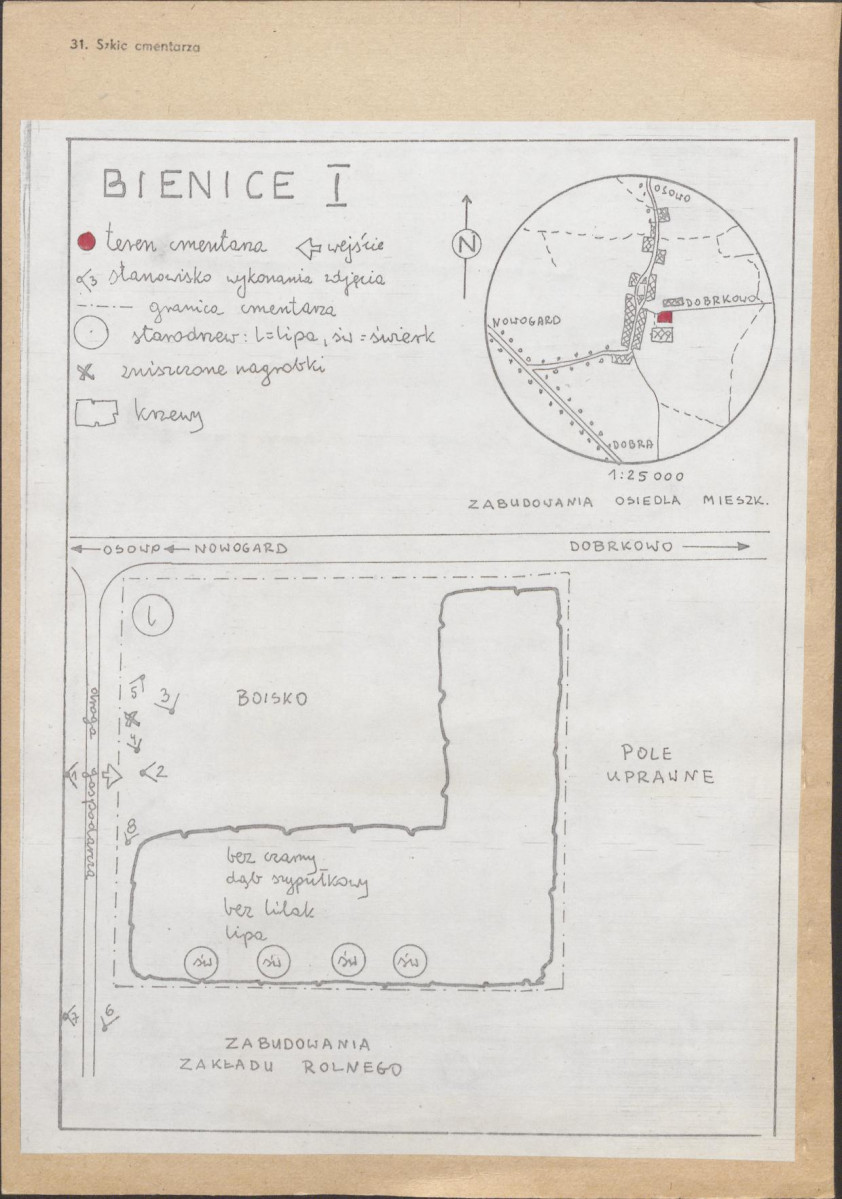 31. Szkic cmentarza
BIENICE I
teren cmentarza wejście
3 stanowisko wykonania zdjęcia
granica cmentarza
starodrzew: l=lipa, św=świerk
zniszczone nagrobki
krzewy
N
OSOWO
DOBRKOWO
NOWOGARD
DOBRA
1:25000
ZABUDOWANIA OSIEDLA MIESZK.
OSOWO NOWOGARD DOBRKOWO
l
5 3
BOISKO
4
2
droga gospodarcza
POLE
UPRAWNE
8
bez czarny
dąb szypułkowy
bez lilak
lipa
św św św św
7 6
ZABUDOWANIA
ZAKŁADU ROLNEGO